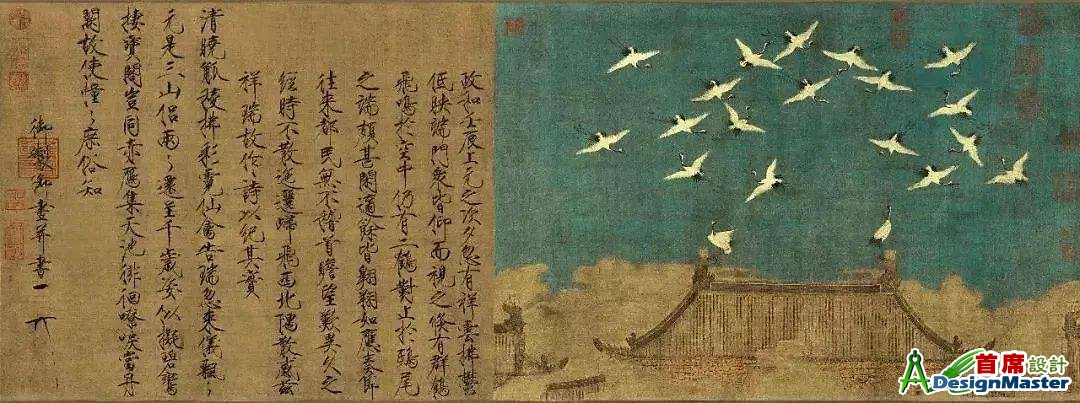 政和壬辰上元之次夕忽有祥雲拂鬱
低映端門衆皆仰而視之倏有群鶴
飛鳴於空中仍有二鶴對止於鴟尾
之端頗甚閑適餘皆翱翔如應奏節
往來都民無不稽首瞻望歎異久之
經時不散迤邐歸飛西北隅散感茲
祥瑞故作詩以紀其實
清曉觚稜拂彩霓仙禽告瑞忽來儀飄々
元是三山侶兩々還呈千歲姿似擬碧鸞
棲寶閣豈同赤雁集天池徘徊嘹唳當丹
闕故使憧々庶俗知
御製御畫并書
首席設計
DesignMaster